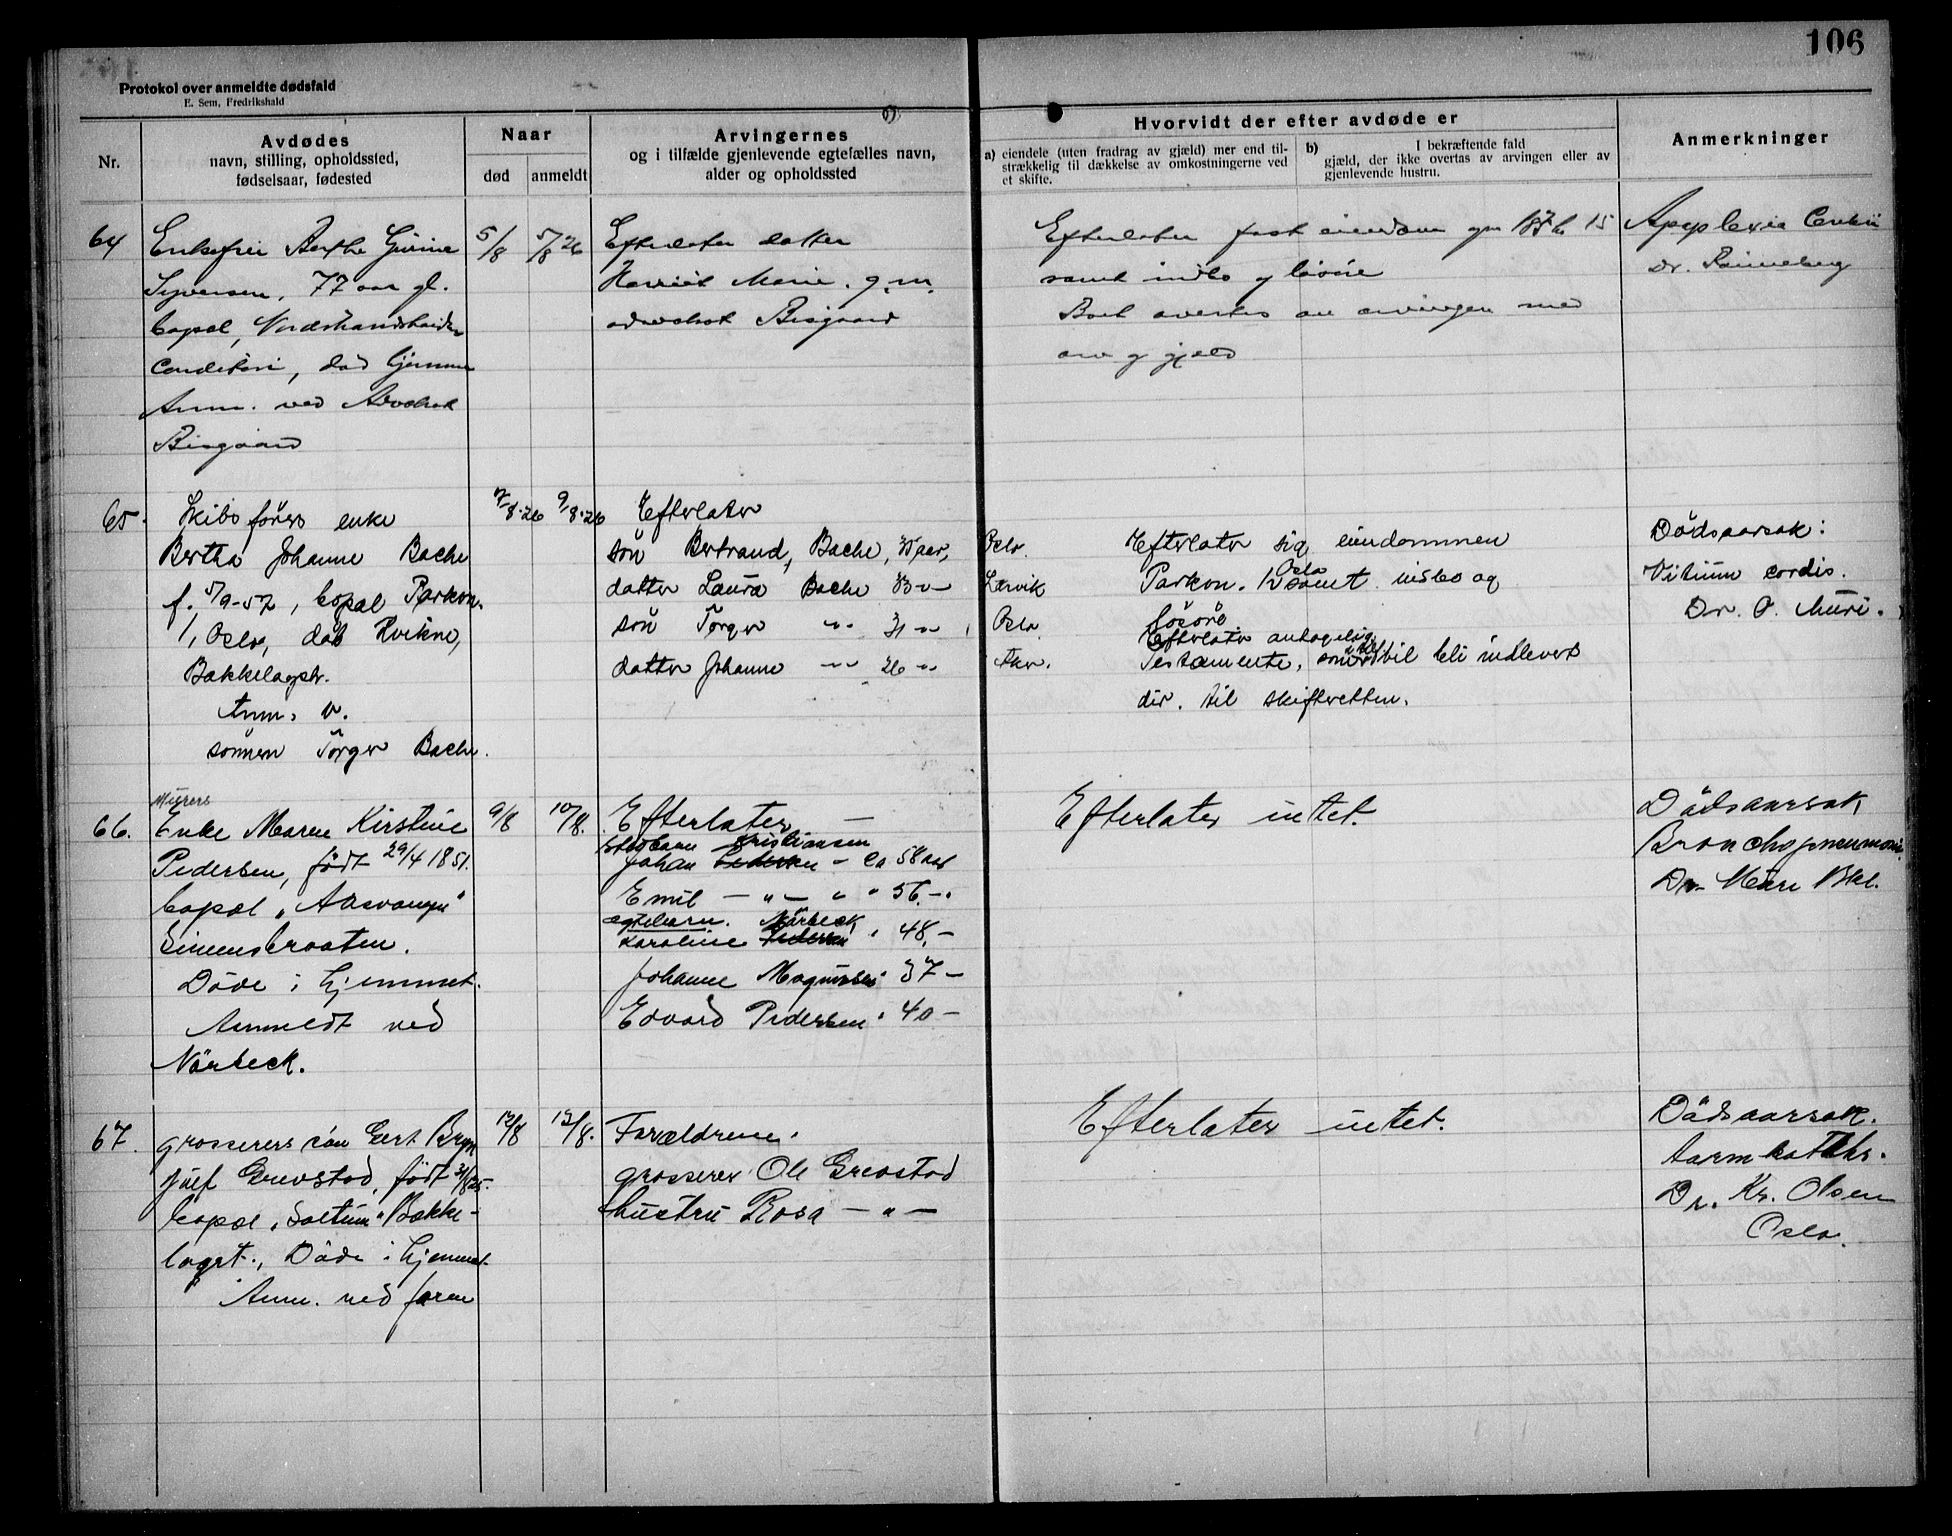 106
Protokol over anmeldte dødsfald
E. Sem, Fredrikshald
Nr.
Avdødes
navn, stilling, opholdssted,
fødselsaar, fødested
Naar
død
anmeldt
Arvingernes
og i tilfælde gjenlevende egtefælles navn,
alder og opholdssted
Hvorvidt der efter avdøde er
a) eiendele (uten fradrag av gjæld) mer end til-
strækkelig til dækkelse av omkostningerne ved
et skifte.
b) I bekræftende fald
gjæld, der ikke overtas av arvingen eller av
gjenlevende hustru.
Anmerkninger
64
Enkefru Berthe
Syversen, 77 aar gl.
bopæl,
Conditori, død hjemme
Anm. ved Advokat
Bisgaard
5/8
5/8 26
Efterlater datter
Harriet Marie g.m.
advokat Bisgaard
Efterlater fast eiendom 15
samt indbo og løsøre
Boet overtas av arvingen med
arv og gjæld
Apoplexia Cerebri
Dr.
65.
Skibsførers enke
Bertha Johanne Bache
f. 5/9-57, bopæl Parkvn.
1, Oslo, død Hvitne,
Bækkelagshr.
Anm. v.
sønnen Torger Bache.
7/8-26
9/8-26
Efterlater
søn Bertrand, Bache, 35 aar, Oslo.
datter Laura Bache 33 -"- Larvik
søn Torger -"- 31 -"- , Oslo.
datter Johanne -"- 26 -"- Aker.
Efterlater sig eiendommen
Parkvn. 1 Oslo samt indbo og
løsøre
Efterlater antagelig
Testamente, som vil bli indlevert
dir. til skifteretten.
Dødsaarsak:
Vitium cordis.
Dr. O. Muri.
66.
Murers
Enke Maren Kirstine
Pedersen, født 29/4 1851.
bopæl "Aasvangen"
Simensbraaten.
Døde i hjemmet.
Anmeldt ved
Nørbeck.
9/8
10/8.
Efterlater —
stedbarn Kristiansen
Johan Pedersen - ca 58 aar
Emil — " — " " 56. - .
egtebarn. Nørbeck
Karoline Pedersen " 48, -
Johanne Magnussen " 37 -
Edvard Pedersen " 40 -
Efterlater intet.
Dødsaarsak
Bronchopneumoni.
Dr. Muri Bkl.
67.
grosserers søn Gert Bryn
julf Grevstad, født 31/8 25.
bopæl "Soltun" Bække-
laget., Døde i hjemmet.
Anm. ved faren
12/8
13/8.
Forældrene.
grosserer Ole Grevstad
hustru Rosa — " —
Efterlater intet.
Dødsaarsak.
tarmkatthr.
Dr. Kr. Olsen
Oslo.